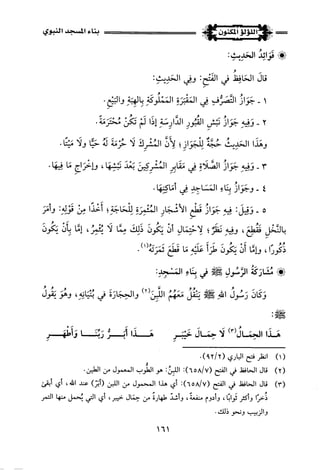 اللؤلؤ المكنون
بناء المسجد النبوي
فَوَائِدُ الحَدِيثِ:
قَالَ الحَافِظُ فِي الفَتْحِ: وفِي الحَدِيثِ:
١ - جَوَازُ التَّصَرُّفِ فِي المَقْبَرَةِ المَمْلُوكَةِ بِالهِبَةِ والبَيْعِ.
٢ - وَفِيهِ جَوَازُ نَبْشِ القُبُورِ الدَّارِسَةِ إِذَا لَمْ تَكُنْ مُحْتَرَمَةً.
وهَذَا الحَدِيثُ حُجَّةٌ لِلْجَوَازِ؛ لِأَنَّ المُشْرِكَ لَا حُرْمَةَ لَهُ حَيًّا ولَا مَيِّتًا.
٣ - وَفِيهِ جَوَازُ الصَّلَاةِ فِي مَقَابِرِ المُشْرِكِينَ بَعْدَ نَبْشِهَا، وإِخْرَاجِ مَا فِيهَا.
٤ - وجَوَازُ بِنَاءِ المَسَاجِدِ فِي أَمَاكِنِهَا.
٥ - وَقِيلَ: فِيهِ جَوَازُ قَطْعِ الأَشْجَارِ المُثْمِرَةِ لِلْحَاجَةِ؛ أَخْذًا مِنْ قَوْلِهِ: وأَمَرَ
بِالنَّخْلِ فَقُطِعَ، وفِيهِ نَظَرٌ؛ لِاحْتِمَالِ أَنْ يَكُونَ ذَلِكَ مِمَّا لَا يُثْمِرُ، إِمَّا بِأَنْ يَكُونَ
ذُكُورًا، وإِمَّا أَنْ يَكُونَ طَرَأَ عَلَيْهِ مَا قَطَعَ ثَمَرَتَهُ(١).
مُشَارَكَةُ الرَّسُولِ ﷺ فِي بِنَاءِ المَسْجِدِ:
وَكَانَ رَسُولُ اللهِ ﷺ يَنْقُلُ مَعَهُمُ اللَّبِنَ(٢) والحِجَارَةَ فِي بُنْيَانِهِ، وهُوَ يَقُولُ
ﷺ:
هَذَا الحِمَالُ(٣) لَا حِمَالُ خَيْبَر هَذَا أَبَرُّ رَبَّنَا وَأَطْهَر
(١) انظر فتح الباري (٩٢/٢).
(٢) قال الحافظ في الفتح (٦٥٨/٧): اللبِنُ: هو الطُّوب المعمول من الطين.
(٣) قال الحافظ في الفتح (٦٥٨/٧): أي هذا المحمول من اللبن (أبَرُّ) عند الله، أي أبقىٰ
ذُخرًا وأكثر ثوابًا، وأدوم منفعة، وأشدّ طهارةً من حِمَال خيبر، أي التي يُحمل منها التمر
والزبيب ونحو ذلك.
١٦١